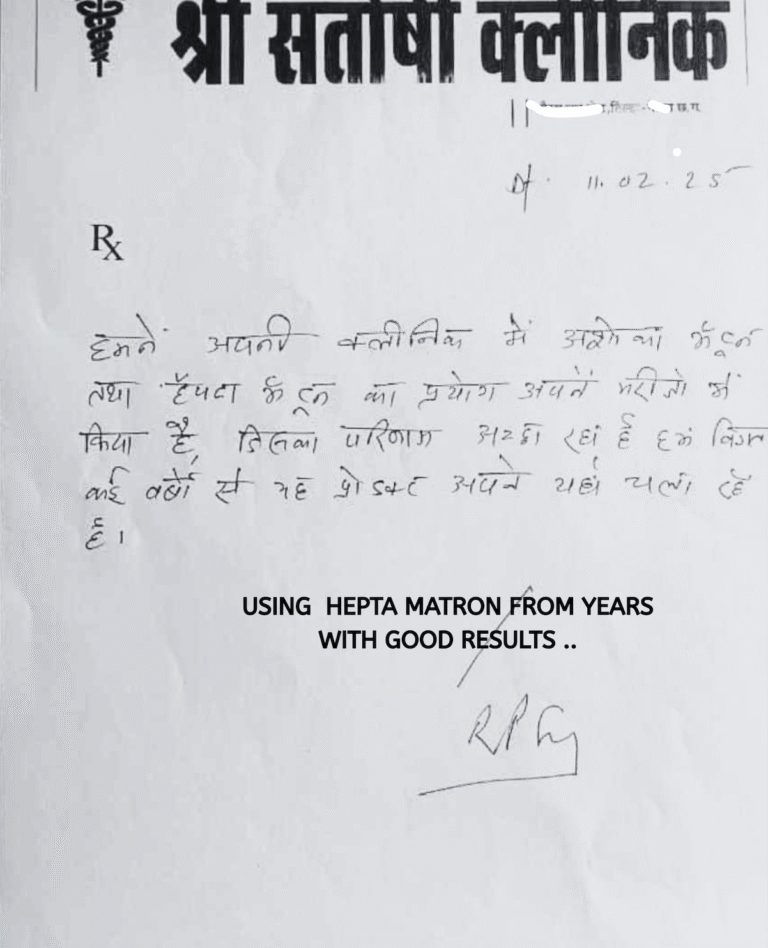 श्री सतोषी क्लीनिक
छ.ग.
Dt. 11.02.25
Rx
हमनें अपनी क्लीनिक में अशोका मैट्रन
तथा हैपटा मैट्रन का प्रयोग अपनें मरीजो में
किया है, जिसका परिणाम अच्छा रहां है हम विगत
कई वर्षो से यह प्रोडक्ट अपने यहां चला रहें
है।
USING HEPTA MATRON FROM YEARS
WITH GOOD RESULTS ..